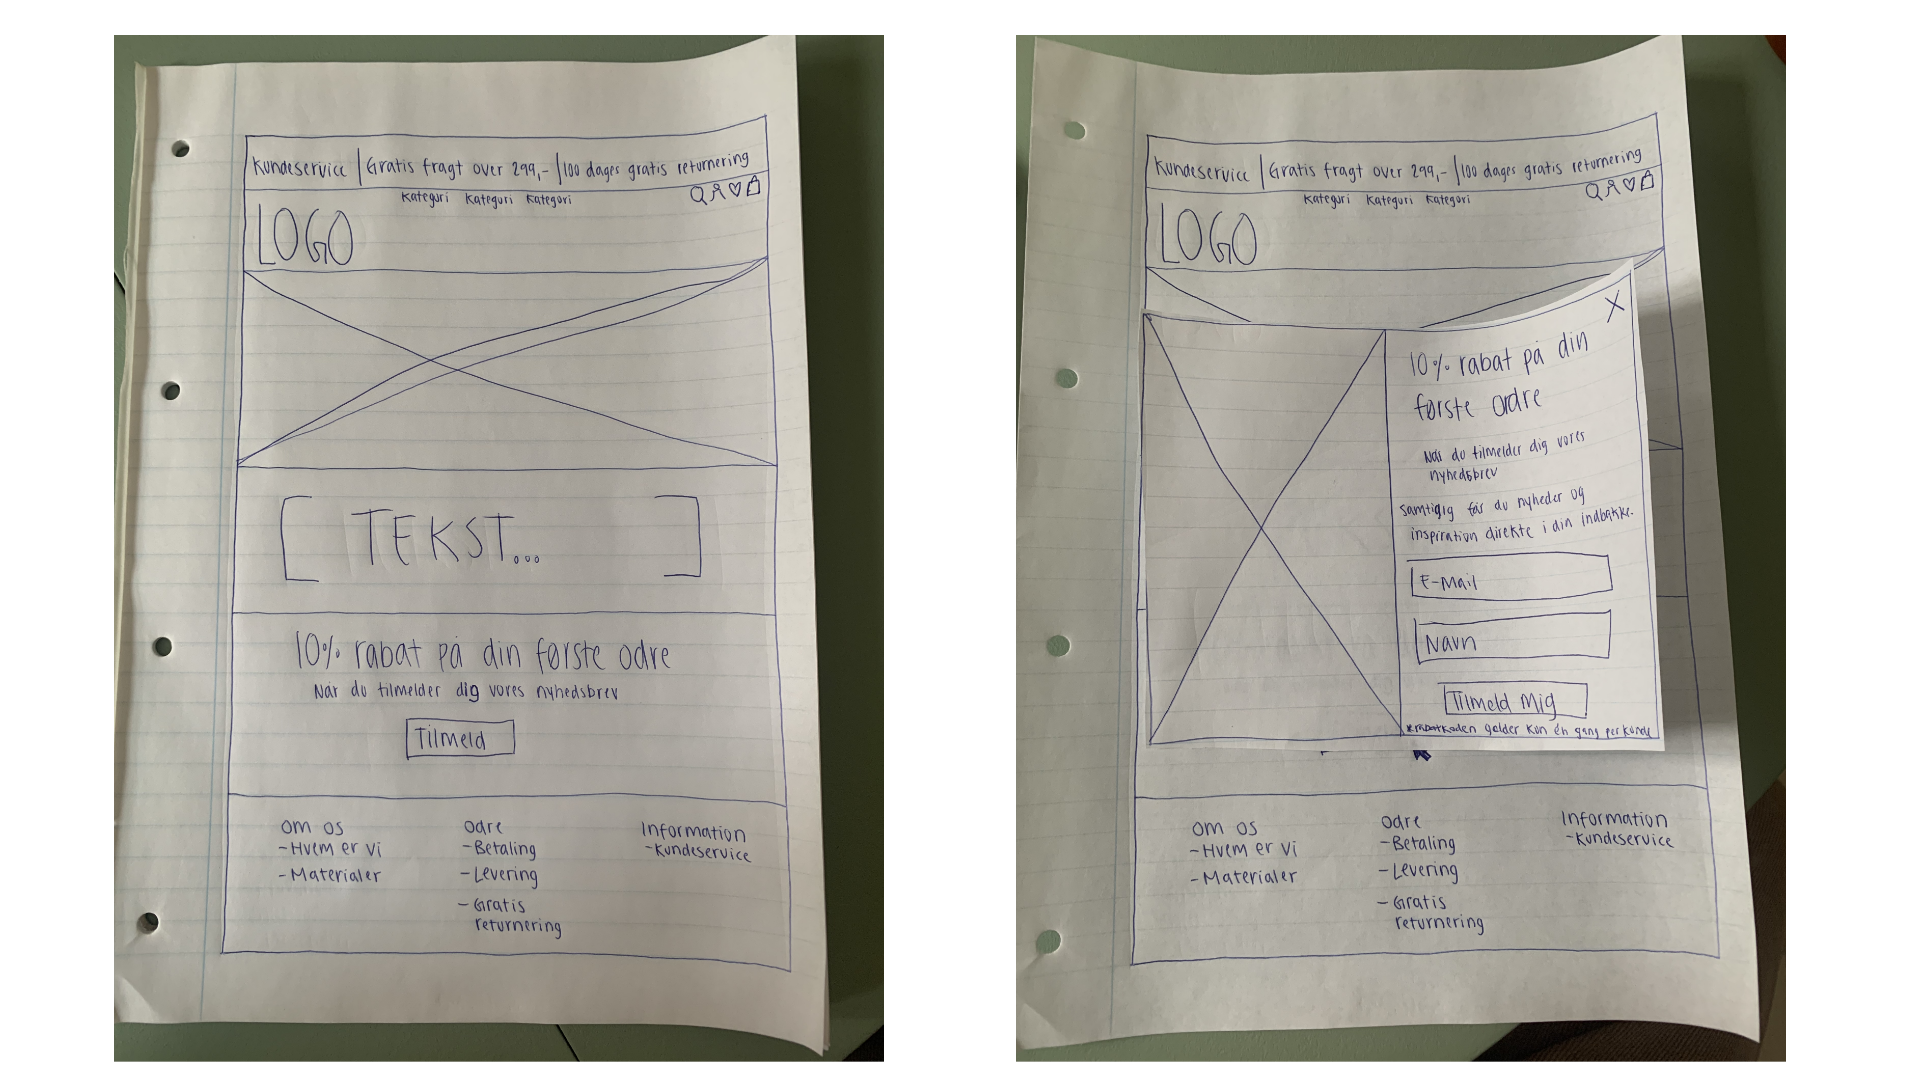 Kundeservice | Gratis fragt over 299,- | 100 dages gratis returnering
Kategori Kategori Kategori
LOGO
TEKST...
10% rabat på din første odre
Når du tilmelder dig vores nyhedsbrev
Tilmeld
Om os
- Hvem er vi
- Materialer
Odre
- Betaling
- Levering
- Gratis
returnering
Information
- Kundeservice
Kundeservice | Gratis fragt over 299,- | 100 dages gratis returnering
Kategori Kategori Kategori
LOGO
X
10% rabat på din
første ordre
Når du tilmelder dig vores
nyhedsbrev
samtigig får du nyheder og
inspiration direkte i din indbakke.
E-Mail
Navn
Tilmeld Mig
*rabatkoden gælder kun én gang per kunde
Om os
- Hvem er vi
- Materialer
Odre
- Betaling
- Levering
- Gratis
returnering
Information
- Kundeservice